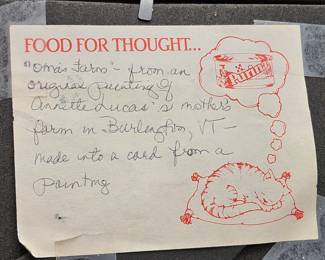 FOOD FOR THOUGHT...
"Oma's Farm" - from an
original painting of
Annette Lucas's mother's
farm in Burlington, VT -
made into a card from a
painting
Purrina